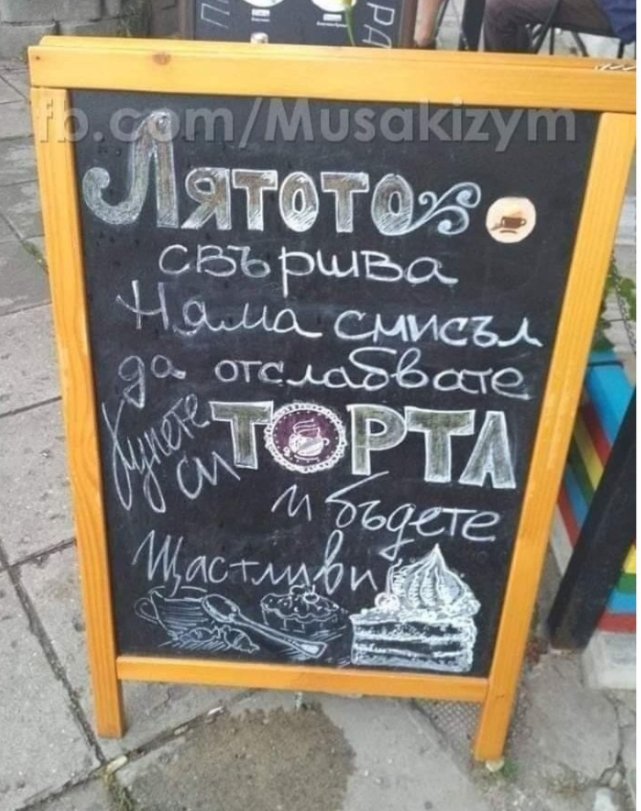 fb.com/Musakizym
Лятото
свършва
Няма смисъл
да отслабвате
Купете
си ТОРТА
и бъдете
Щастливи